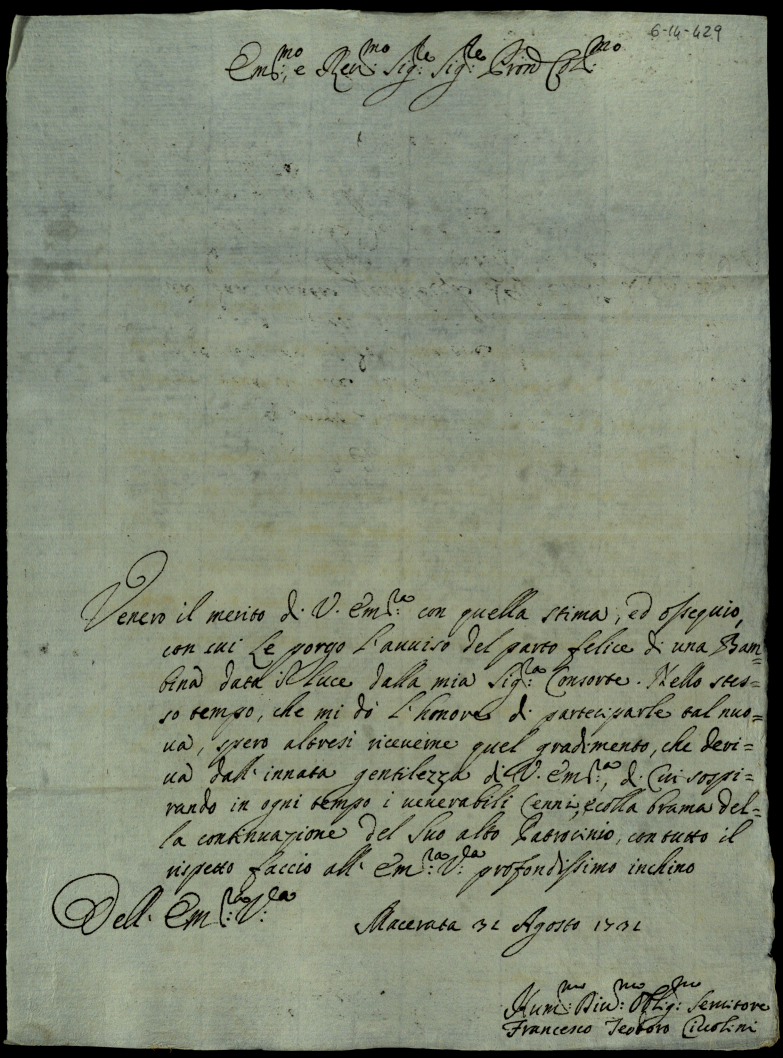 6-14-429
Em:mo, e Rev:mo Sig:re Sig:re Pron Col:mo
Venero il merito di V. Em:ra con quella stima, ed ossequio,
con cui Le porgo l'auuiso del parto felice di una Bam=
bina data in luce dalla mia Sig:ra Consorte. Nello stes=
so tempo, che mi dò l'honore di parteciparle tal nuo=
ua, spero altresì riceuerne quel gradimento, che deri=
ua dall'innata gentilezza di V. Em:ra, di Cui sospi=
rando in ogni tempo i uenerabili Cenni, e colla brama del=
la continuazione del Suo alto Patrocinio, con tutto il
rispetto faccio all' Em:ra V:ra profondissimo inchino
Dell' Em:ra V:ra
Macerata 31 Agosto 1731
Hum:mo Diu:mo Oblig:mo Seruitore
Francesco Teodoro Ciccolini